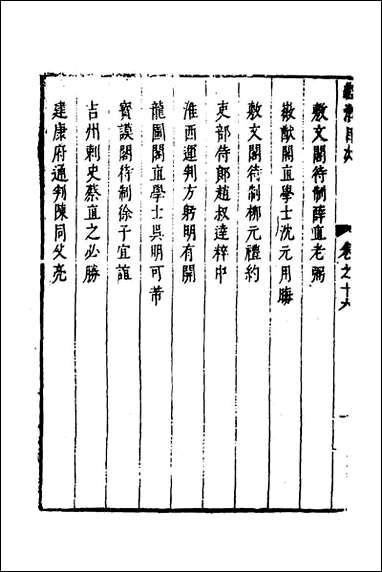 卷之十六
敷文閣待制薛直老弼
徽猷閣直學士沈元用晦
敷文閣待制柳元禮約
吏部侍郎趙叔達粹中
淮西運判方躬明有開
龍圖閣直學士吳明可芾
寶謨閣待制徐子宜誼
吉州刺史蔡直之必勝
建康府通判陳同父亮